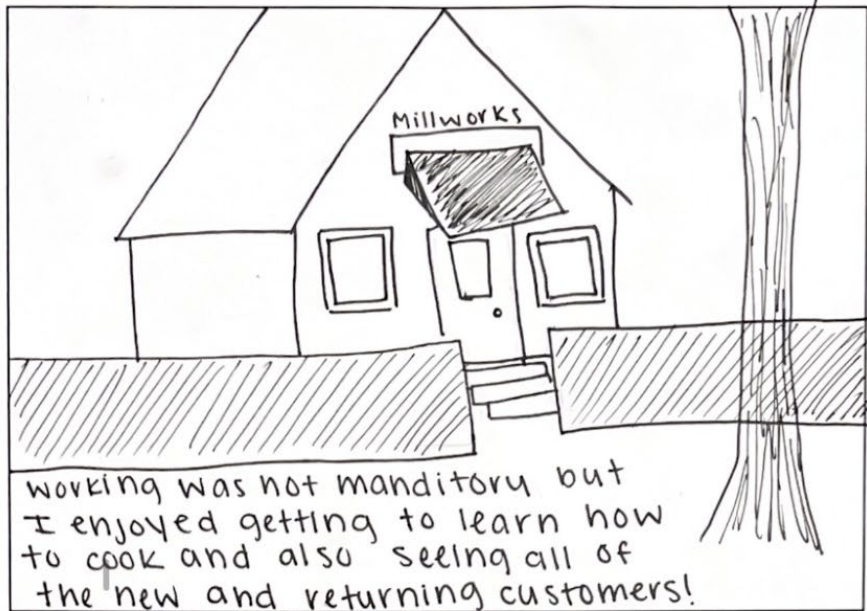 Millworks
working was not manditory but
I enjoyed getting to learn how
to cook and also seeing all of
the new and returning customers!